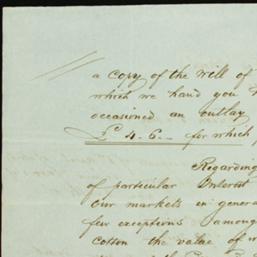 a copy of the will of
which we hand you
occasioned an outlay
£ 4.6.– for which
Regarding
of particular Interest
Our markets in genera
few exceptions among
cotton the value of